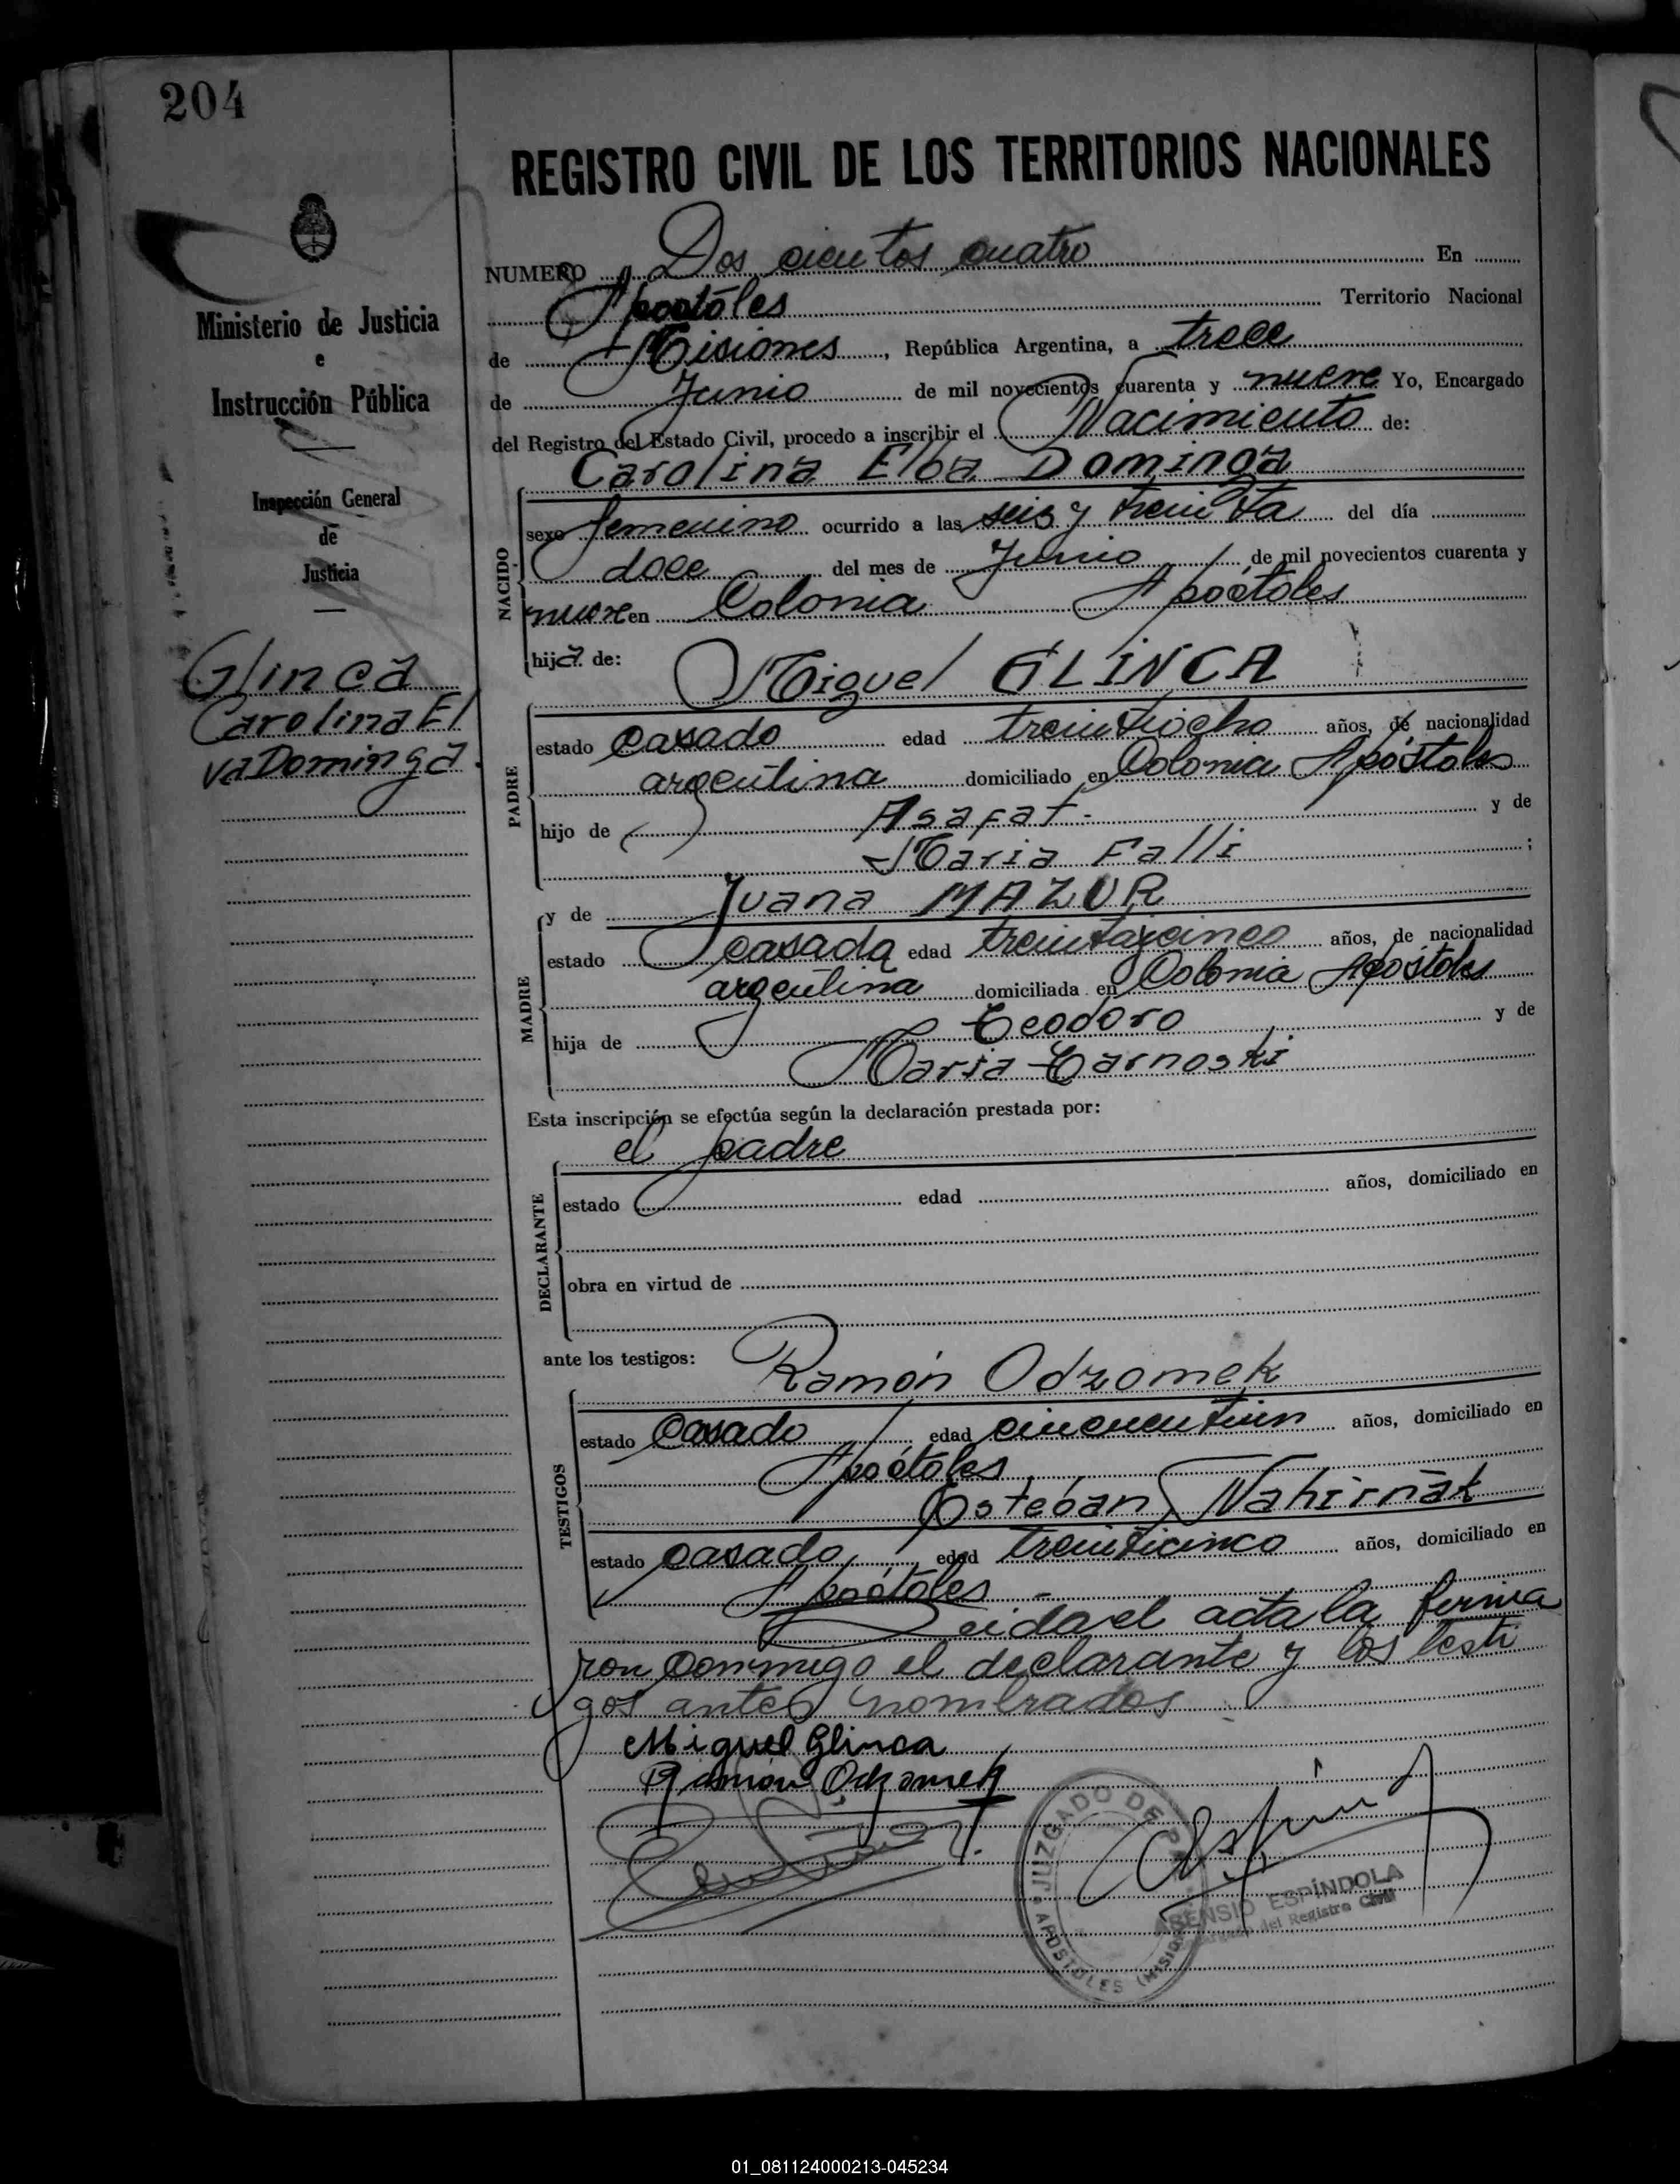 204
REGISTRO CIVIL DE LOS TERRITORIOS NACIONALES
NUMERO Dos cientos cuatro En
Apostóles Territorio Nacional
de Misiones, República Argentina, a trece
de Junio de mil novecientos cuarenta y nueve Yo, Encargado
del Registro del Estado Civil, procedo a inscribir el Nacimiento de:
Carolina Elba Dominga
Ministerio de Justicia
e
Instrucción Pública
Inspección General
de
Justicia
Glinca
Carolina El
va Dominga.
NACIDO
sexo femenino ocurrido a las seis y treinta del día
doce del mes de Junio de mil novecientos cuarenta y
nueve en Colonia Apóstoles
hija de: Miguel GLINCA
PADRE
estado casado edad treintiocho años, de nacionalidad
argentina domiciliado en Colonia Apóstoles
hijo de Asafat - y de
Maria Falli ;
y de Juana MAZUR
MADRE
estado casada edad treintaycinco años, de nacionalidad
argentina domiciliada en Colonia Apóstoles
hija de Teodoro y de
Maria Tarnoski
Esta inscripción se efectúa según la declaración prestada por:
el padre
DECLARANTE
estado edad años, domiciliado en
obra en virtud de
ante los testigos: Ramón Odzomek
TESTIGOS
estado casado edad cincuentiun años, domiciliado en
Apóstoles
Esteban Nahirñak
estado casado edad treinticinco años, domiciliado en
Apóstoles -
Leida el acta la firma
ron conmigo el declarante y los testi
gos antes nombrados
Miguel Glinca
Ramón Odzomek
JUZGADO DE PAZ
APOSTOLES (MISIONES)
ASENSIO ESPÍNDOLA
Encargado del Registro Civil
01_081124000213-045234